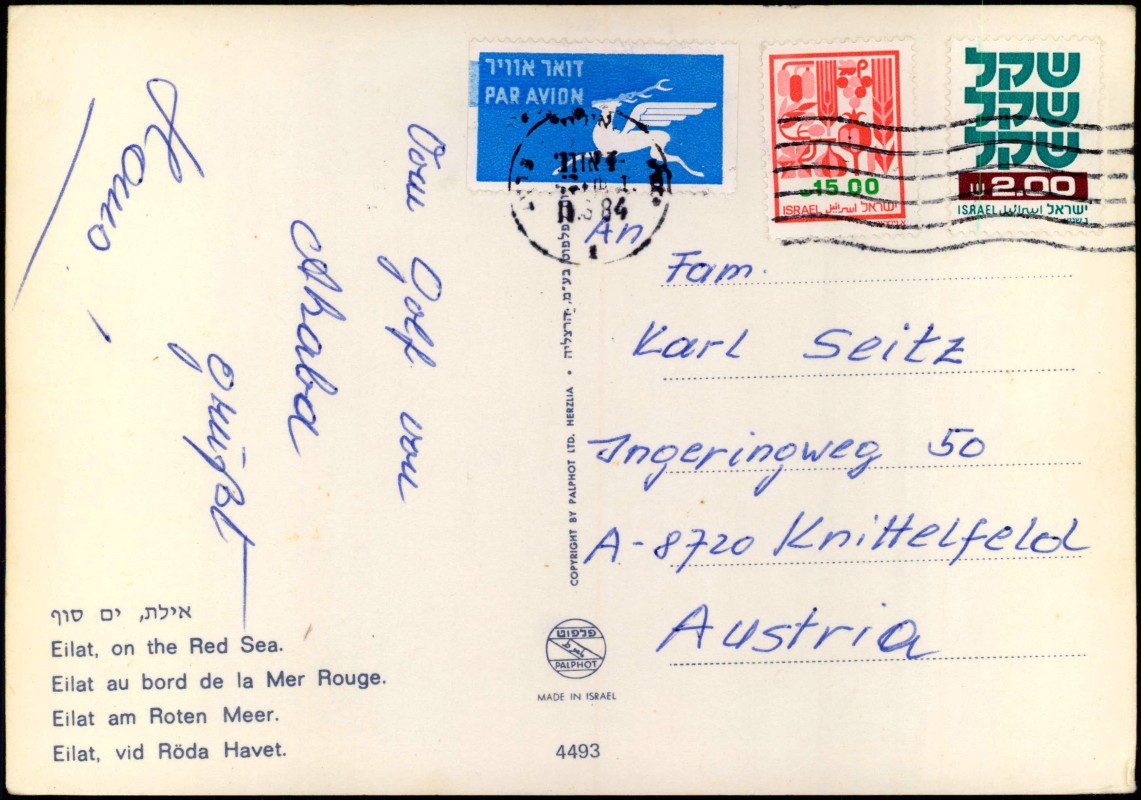 דואר אוויר
PAR AVION
15.00
ISRAEL اسرائيل ישראל
שקל
שקל
שקל
2.00
ISRAEL اسرائيل ישראל
84
Vom Golf von
Akaba
grüßt
An
Fam.
Karl Seitz
Ingeringweg 50
A-8720 Knittelfeld
Austria
אילת, ים סוף
Eilat, on the Red Sea.
Eilat au bord de la Mer Rouge.
Eilat am Roten Meer.
Eilat, vid Röda Havet.
COPYRIGHT BY PALPHOT LTD. HERZLIA • פלפוט בע"מ, הרצליה
פלפוט
PALPHOT
MADE IN ISRAEL
4493